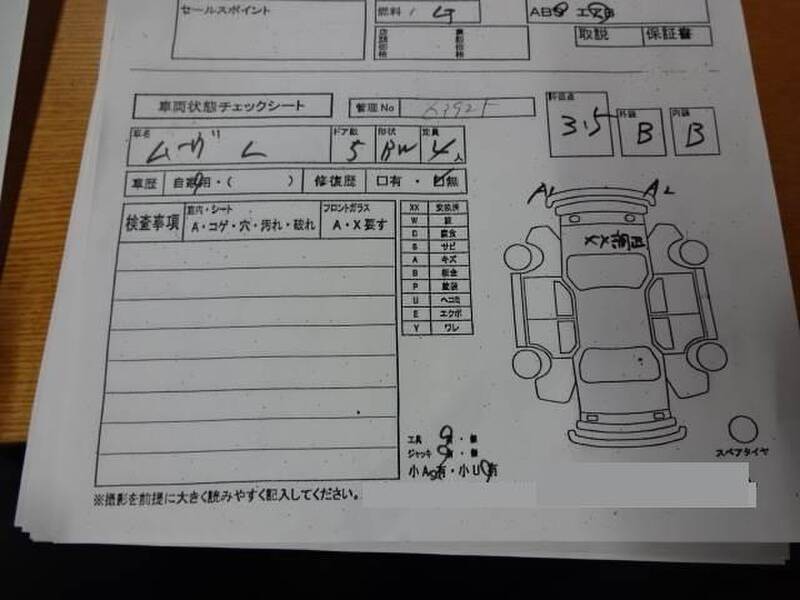 セールスポイント
燃料 / G
ABS エアB
取説 保証書
車両状態チェックシート
管理No
評価点 3.5
外装 B
内装 B
車名 ムーヴ L
ドア数 5
形状 BW
定員 4人
車歴 自家用・( ) 修復歴 □有・☑無
検査事項
室内・シート
A・コゲ・穴・汚れ・破れ
フロントガラス
A・X要す
XX 交換済
W 波
D 腐食
S サビ
A キズ
B 板金
P 塗装
U ヘコミ
E エクボ
Y ワレ
A1 A2
XX
工具 有・無
ジャッキ 有・無
小A有・小U有
スペアタイヤ
※撮影を前提に大きく読みやすく記入してください。